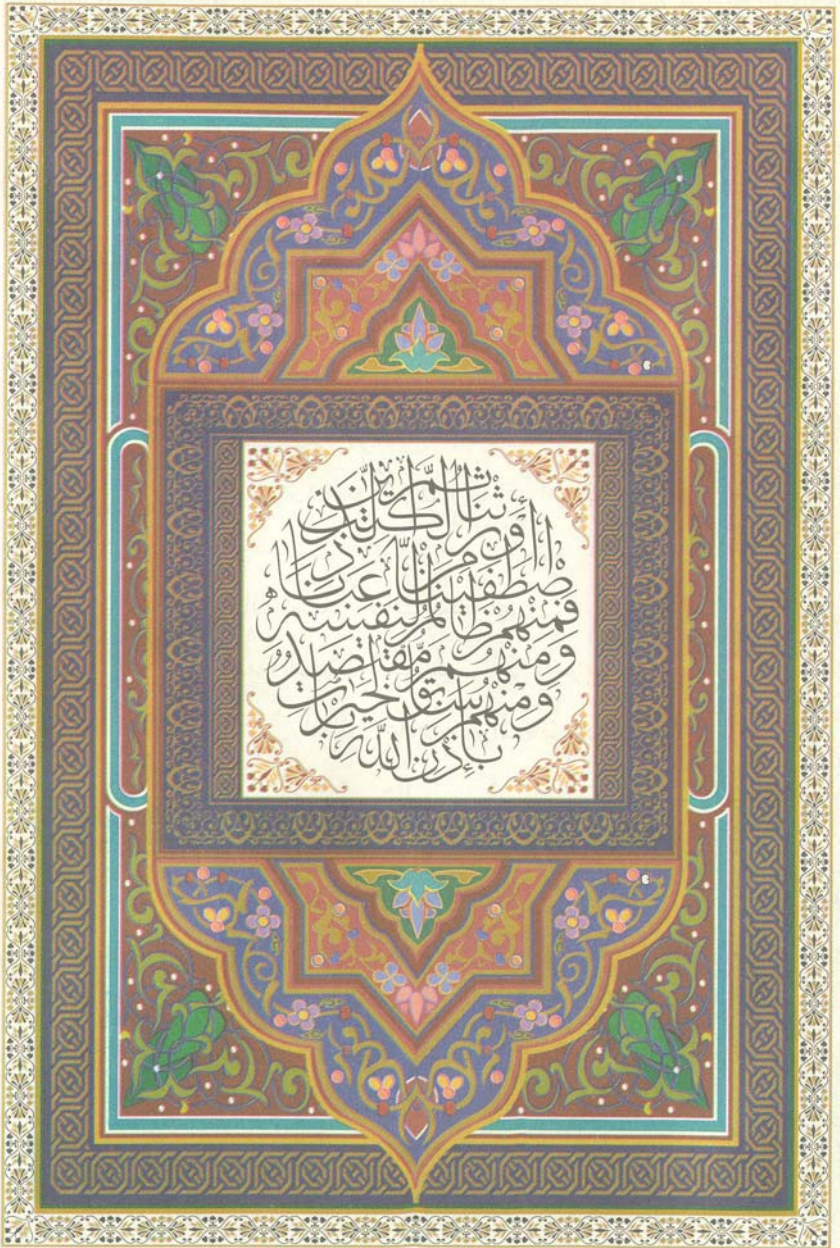 ثُمَّ أَوْرَثْنَا الْكِتَٰبَ الَّذِينَ
اصْطَفَيْنَا مِنْ عِبَادِنَا
فَمِنْهُمْ ظَالِمٌ لِّنَفْسِهِ
وَمِنْهُم مُّقْتَصِدٌ
وَمِنْهُمْ سَابِقٌ بِالْخَيْرَاتِ
بِإِذْنِ اللَّهِ